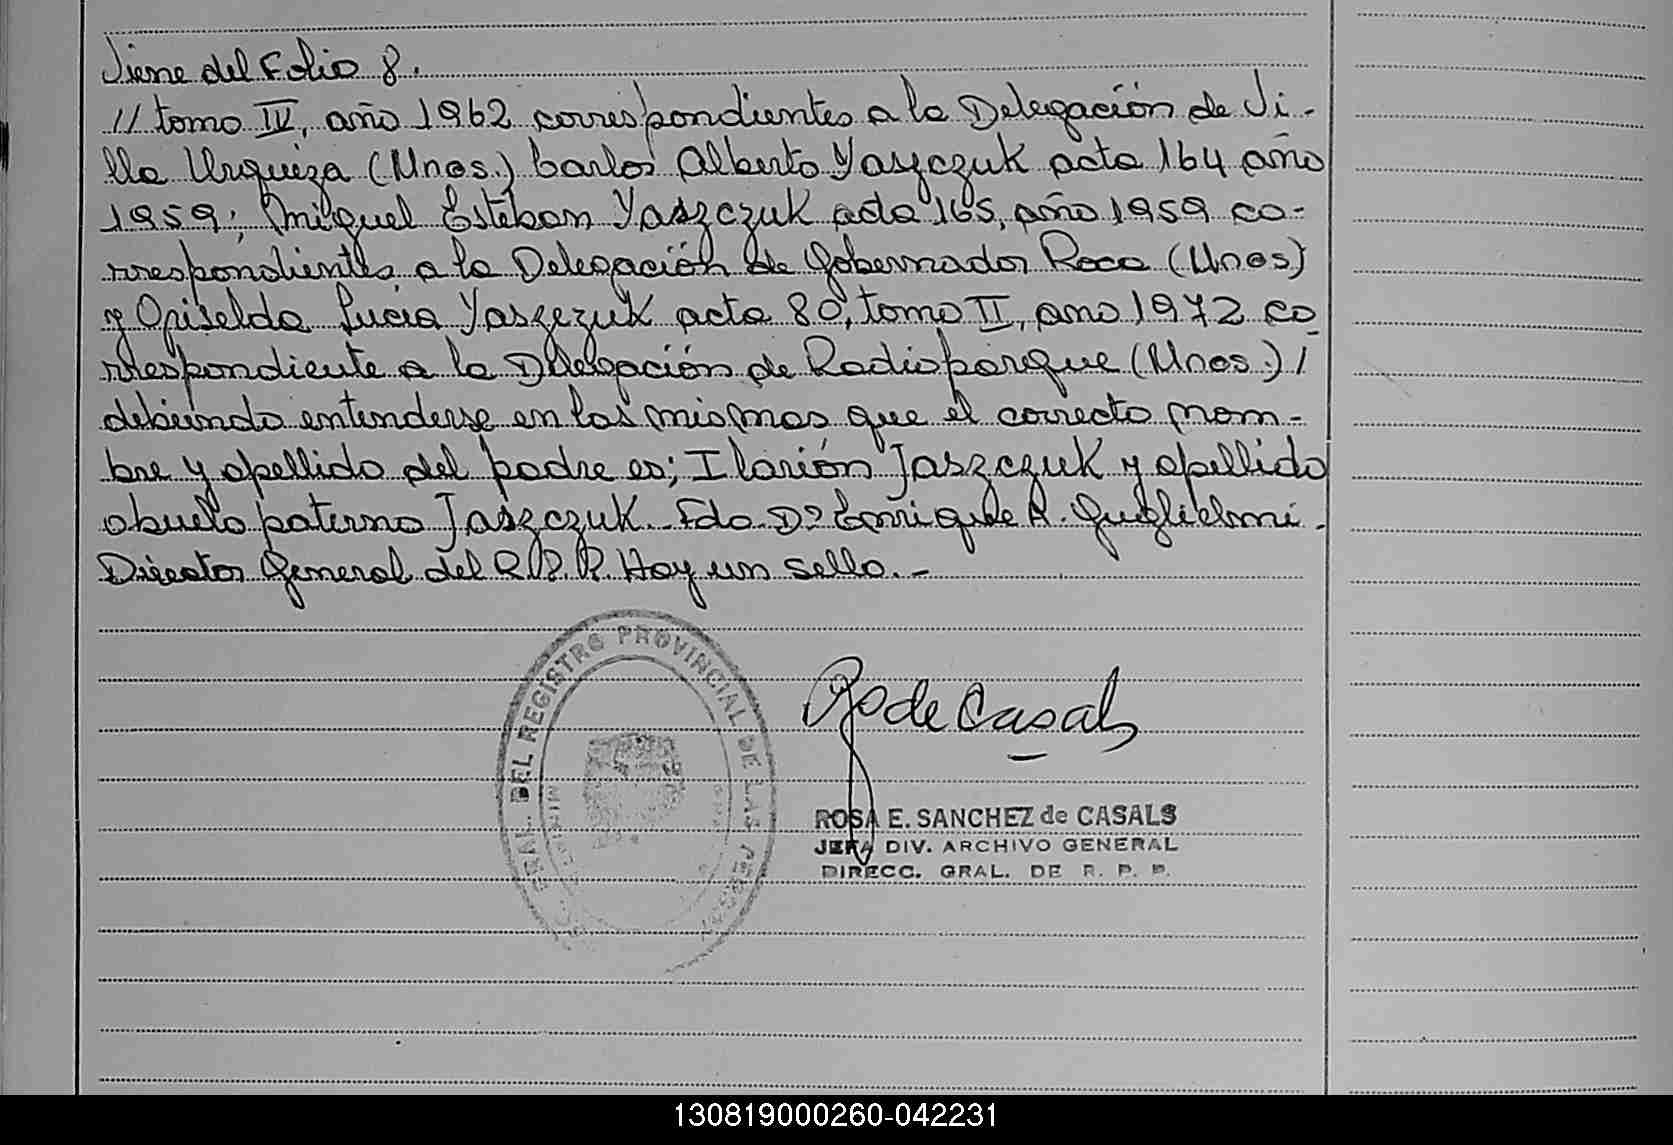 Viene del Folio 8.
// tomo IV, año 1962 correspondientes a la Delegación de Vi-
lla Urquiza (Mnes.) Carlos Alberto Yaszczuk acta 164 año
1959; Miguel Esteban Yaszczuk acta 165, año 1959 co-
rrespondientes a la Delegación de Gobernador Roca (Mnes)
y Griselda Lucia Yaszczuk acta 80, tomo II, año 1972 co
rrespondiente a la Delegación de Radioparque (Mnes.) /
debiendo entenderse en los mismos que el correcto nom-
bre y apellido del padre es; Ilarión Jaszczuk y apellido
abuelo paterno Jaszczuk. Fdo. Dº Enrique A. Guglielmi.
Director General del R.P.P. Hay un sello.-
GRAL. DEL REGISTRO PROVINCIAL DE LAS
de Casals
ROSA E. SANCHEZ de CASALS
JEFA DIV. ARCHIVO GENERAL
DIRECC. GRAL. DE R. P. P.
130819000260-042231